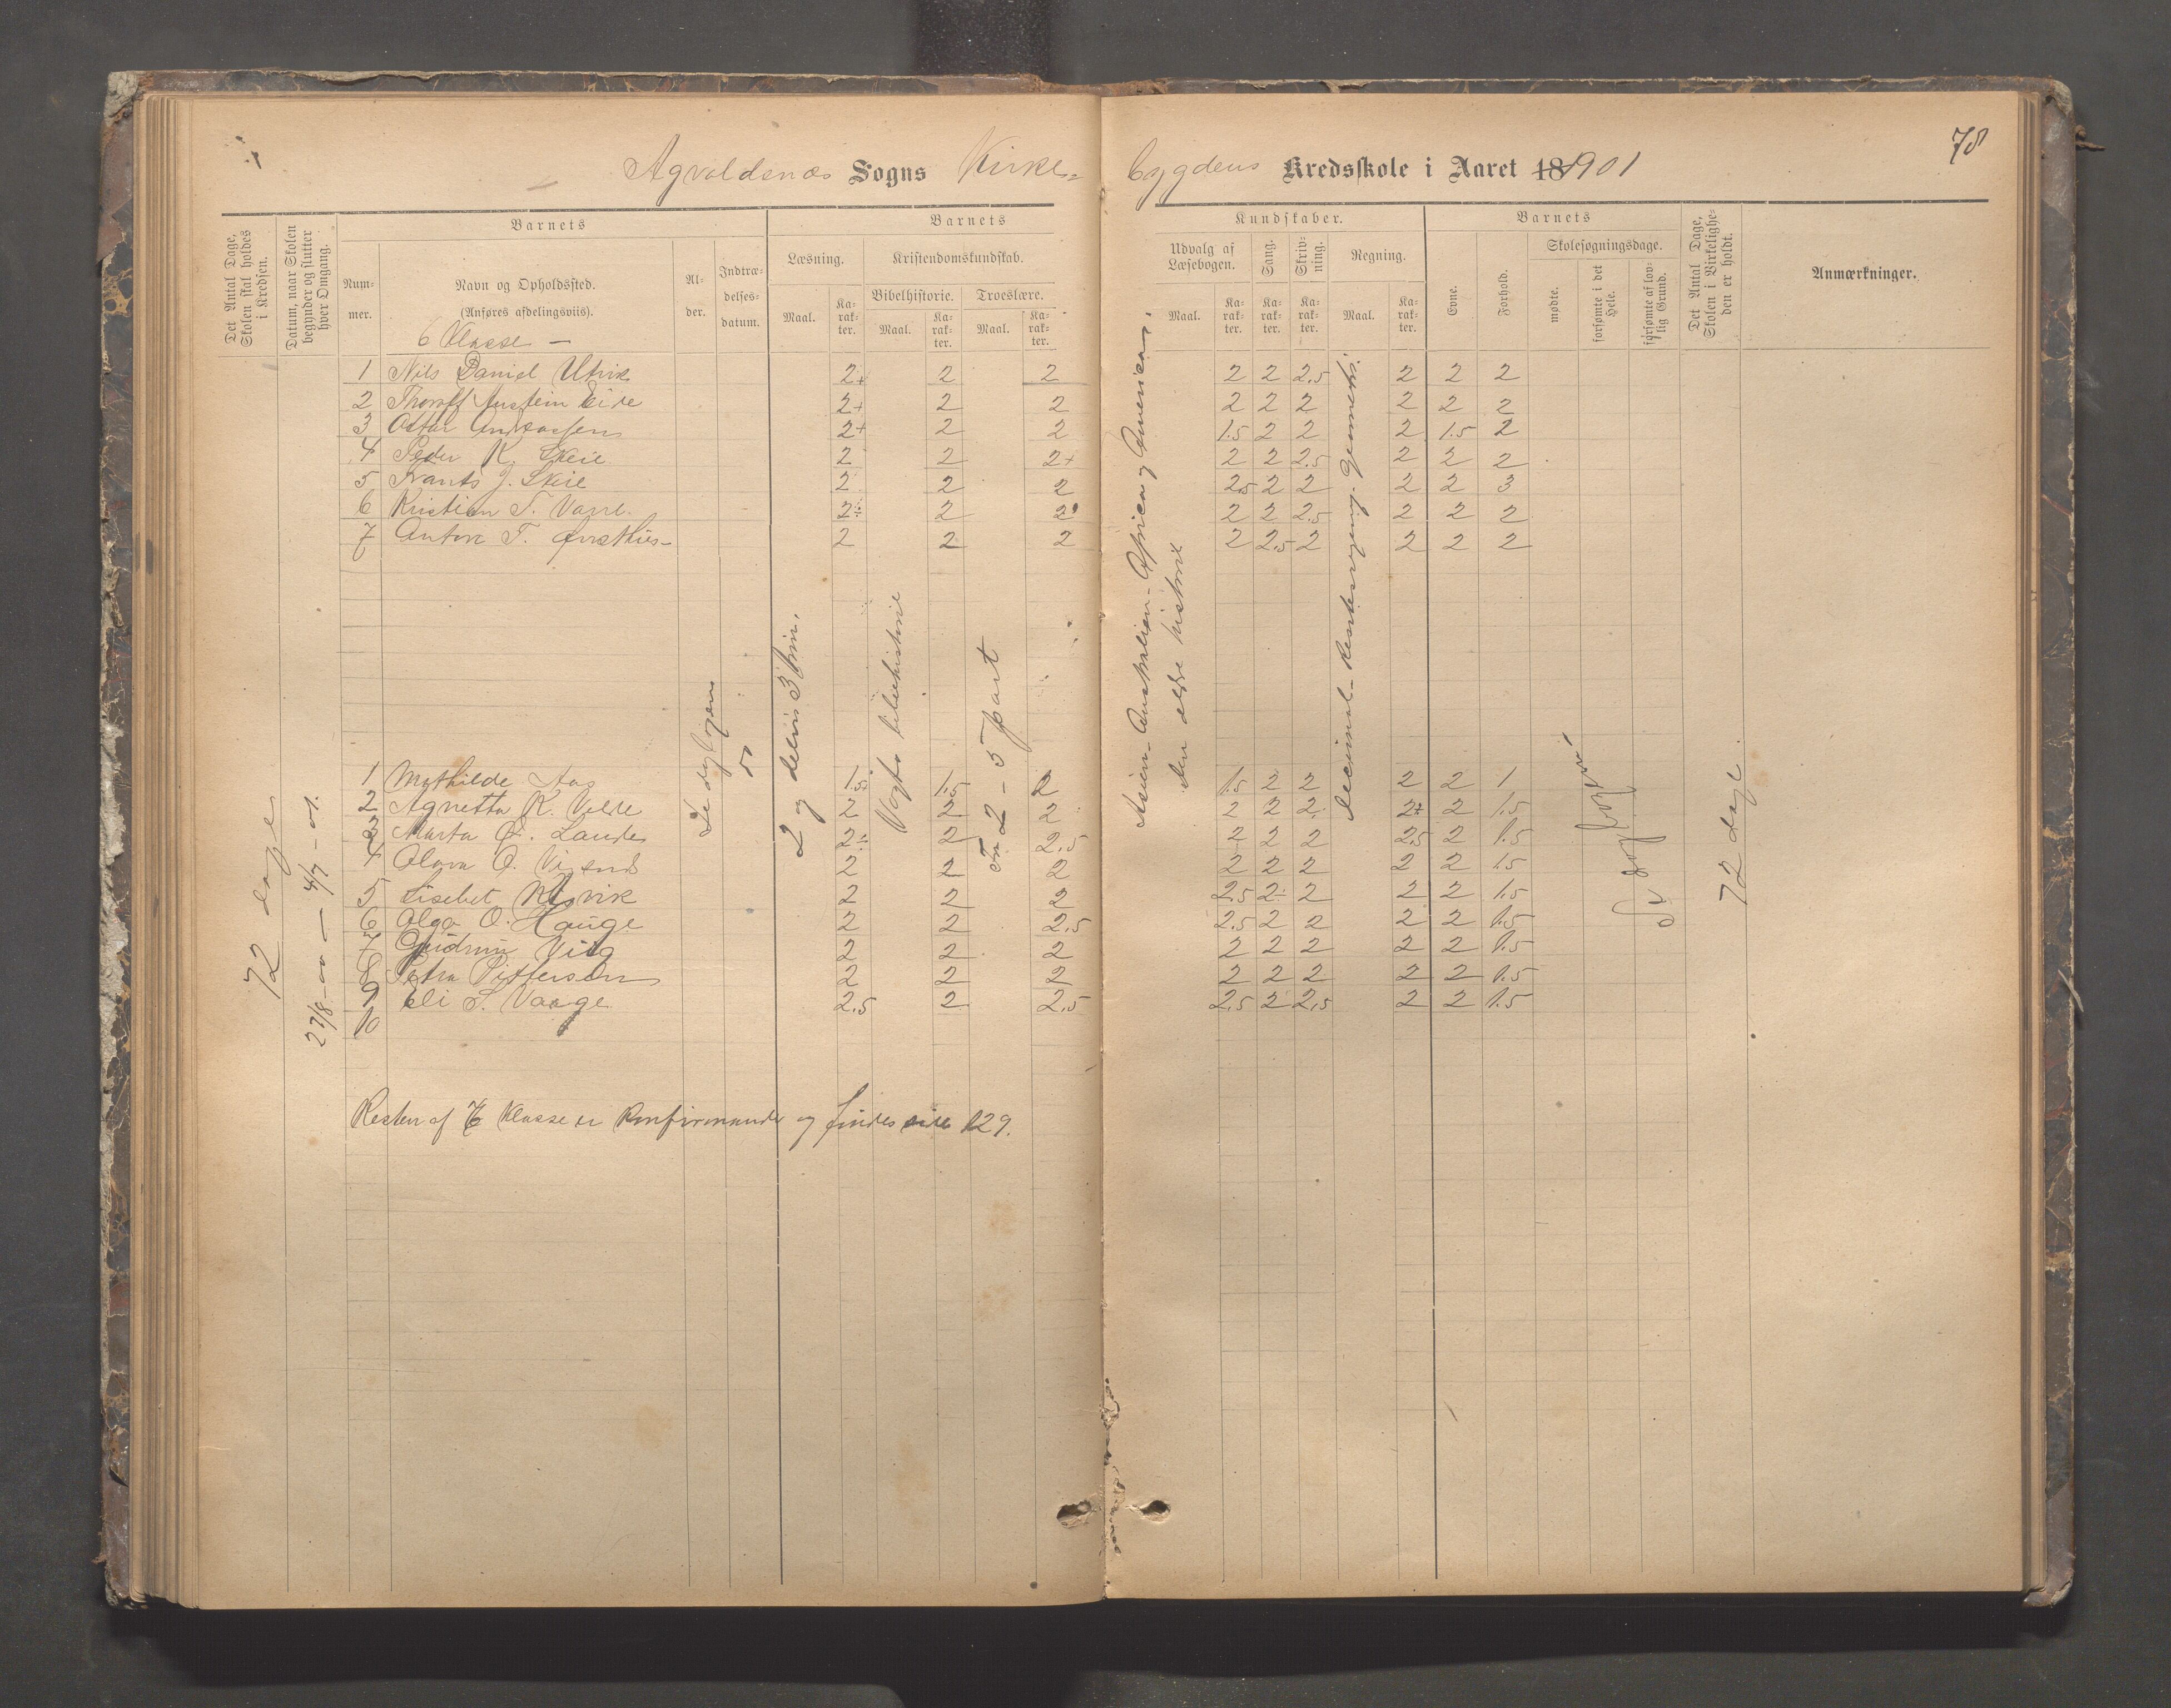 78
Agvaldsnæs Sogns Kirke=
bygdens Kredsskole i Aaret 181901
Det Antal Dage, Skolen skal holdes i Kredsen.
Datum, naar Skolen begynder og slutter hver Omgang.
Barnets
Num-mer.
Navn og Opholdssted.
(Anføres afdelingsviis).
Al-der.
Indtræ-delses-datum.
Barnets
Læsning.
Maal.
Ka-rak-ter.
Kristendomskundskab.
Bibelhistorie.
Maal.
Ka-rak-ter.
Troeslære.
Maal.
Ka-rak-ter.
Kundskaber.
Udvalg af Læsebogen.
Maal.
Ka-rak-ter.
Sang.
Ka-rak-ter.
Skriv-ning.
Ka-rak-ter.
Regning.
Maal.
Ka-rak-ter.
Barnets
Evne.
Forhold.
Skolesøgningsdage.
mødte.
forsømte i det Hele.
forsømte af lov-lig Grund.
Det Antal Dage, Skolen i Virkelighe-den er holdt.
Anmærkninger.
6 Klasse —
1 Nils Daniel Utvik 2+ 2 2 2 2 2.5 2 2 2
2 Thoralf Austein Eide 2+ 2 2 2 2 2 2 2 2
3 Oskar Andreassen 2+ 2 2 1.5 2 2 2 1.5 2
4 Peder K. Skeie 2 2 2+ 2 2 2.5 2 2 2
5 Frants J. Skeie 2 2 2 2.5 2 2 2 2 3
6 Kristian T. Varre. 2÷ 2 2 2 2 2.5 2 2 2
7 Anton T. 2 2 2 2 2.5 2 2 2 2
1 Mathilde Aas 1.5 1.5 2 1.5 2 2 2 2 1
2 Agnetha K. Velde 2 2 2 2 2 2 2+ 2 1.5
3 Marta Lande 2÷ 2 2.5 2 2 2 2.5 2 1.5
4 Olava O. 2 2 2 2 2 2 2 2 1.5
5 Lisebet Utvik 2 2 2 2.5 2÷ 2 2 2 1.5
6 Olga O. Hauge 2 2 2.5 2.5 2 2 2 2 1.5
7 Gudrun Vilg 2 2 2 2 2 2 2 2 1.5
8 Petra Pitterson 2 2 2 2 2 2 2 2 1.5
9 Eli S. Vaage 2.5 2 2.5 2.5 2 2.5 2 2 1.5
10
72 dage
27/8-00 — 4/7-01.
Se dagbogen
2 og delvis 3 trin.
Vogts bibelhistorie
Fra 2 – 5 part
Asien – Australien – Africa og Amerika.
den ældre historie
Decimal – Rentesregning. Geometri.
Se
72 dage.
Resten af 6 Klasse er Konfirmander og findes side 129.